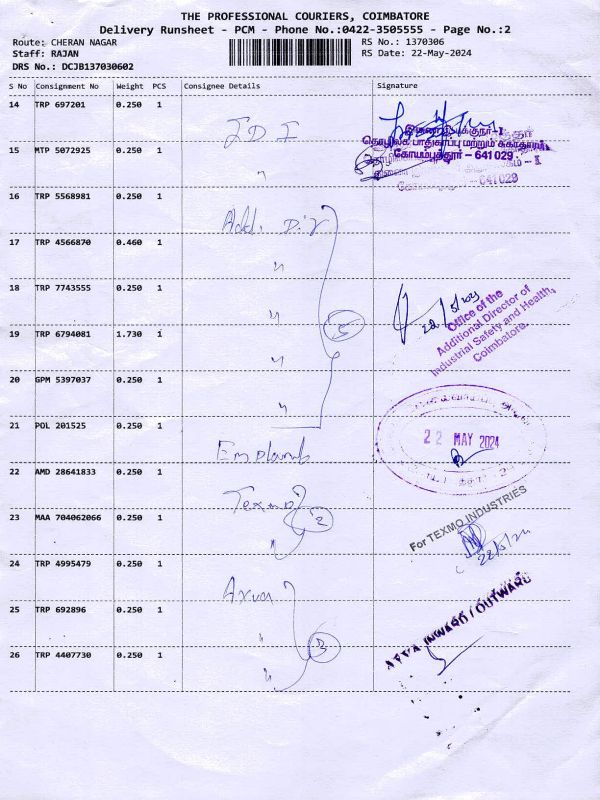 THE PROFESSIONAL COURIERS, COIMBATORE
Delivery Runsheet - PCM - Phone No.:0422-3505555 - Page No.:2
Route: CHERAN NAGAR
RS No.: 1370306
Staff: RAJAN
RS Date: 22-May-2024
DRS No.: DCJB137030602
S No Consignment No Weight PCS Consignee Details Signature
14 TRP 697201 0.250 1
15 MTP 5072925 0.250 1
கோயம்புத்தூர் – 641 029
641 029
16 TRP 5568981 0.250 1
Addl. Dir
17 TRP 4566870 0.460 1
"
18 TRP 7743555 0.250 1
"
5
Office of the
Additional Director of
Industrial Safety and Health,
Coimbatore.
19 TRP 6794081 1.730 1
"
20 GPM 5397037 0.250 1
"
21 POL 201525 0.250 1
22 MAY 2024
22 AMD 28641833 0.250 1
Texmo
For TEXMO INDUSTRIES
23 MAA 704062066 0.250 1
" 2
22/5/24
24 TRP 4995479 0.250 1
INWARD / OUTWARD
25 TRP 692896 0.250 1
" 3
26 TRP 4407730 0.250 1
"